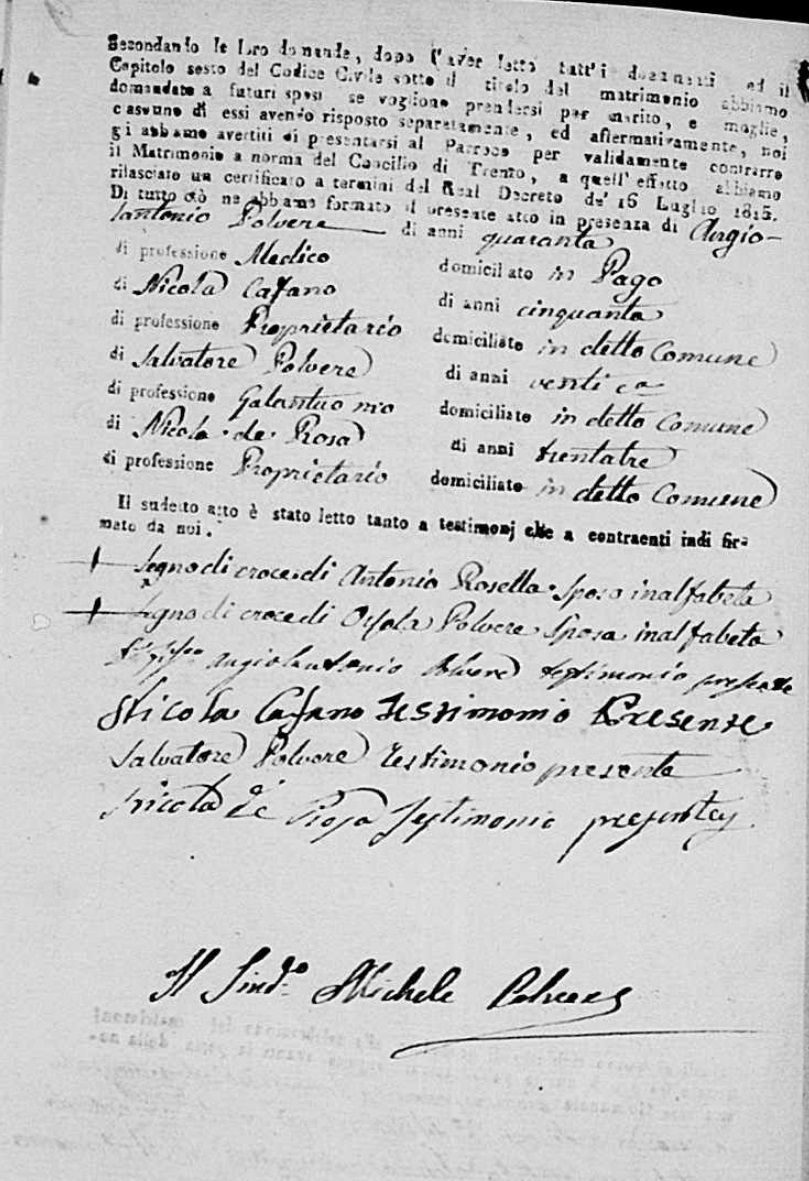 Secondando le loro domande, dopo l'aver letto tutt'i documenti ed il
Capitolo sesto del Codice Civile sotto il titolo del matrimonio abbiamo
domandato a futuri sposi se vogliono prendersi per marito, e moglie,
casouno di essi avendo risposto separatamente, ed affermativamente, noi
gi abbamo avertiti di presentarsi al Parroco per validamente contrarre
il Matrimonio a norma del Concilio di Trento, a quell'effetto abbiamo
rilasciato un certificato a termini del Real Decreto de' 16 Luglio 1815.
Di tutto ciò ne abbiamo formato il presente atto in presenza di Angio-
lantonio Polvere di anni quaranta
di professione Medico domiciliato in Pago
di Nicola Cafano di anni cinquanta
di professione Proprietario domiciliato in detto Comune
di Salvatore Polvere di anni venti
di professione Galantuomo domiciliato in detto Comune
di Nicola de Rosa di anni trentatre
di professione Proprietario domiciliato in detto Comune
Il sudetto atto è stato letto tanto a testimonj che a contraenti indi fir-
mato da noi.
+ Segno di croce di Antonio Rosella Sposo inalfabeta
+ Segno di croce di Orsola Polvere Sposa inalfabeta
Angiolantonio Polvere testimonio presente
Nicola Cafano Testimonio Presente
Salvatore Polvere Testimonio presente
Nicola de Rosa Testimonio presente
Il Sind.o Michele Polvere